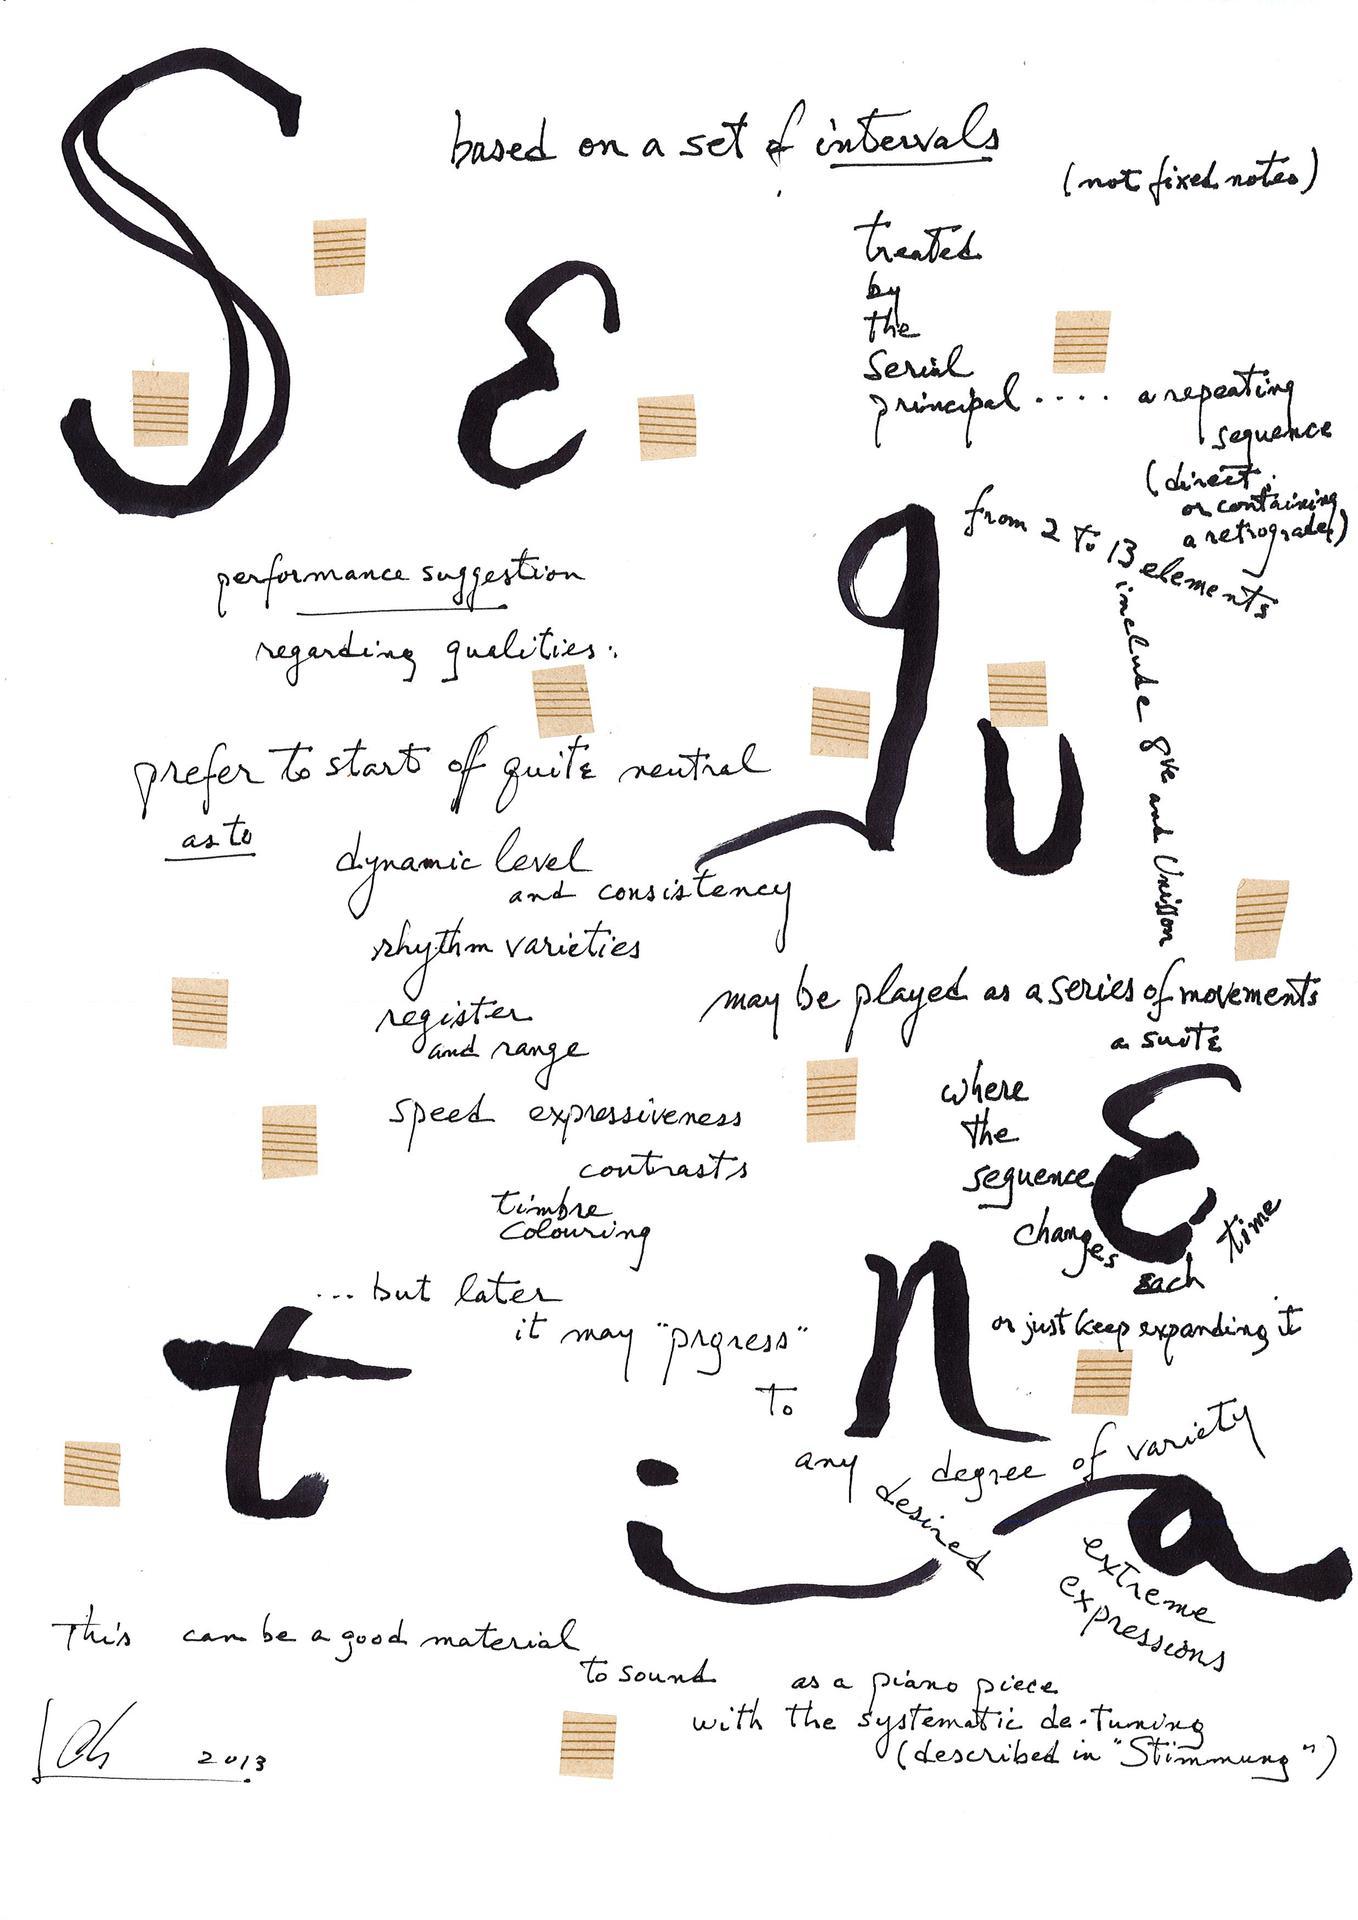 SEquEntia
based on a set of intervals
(not fixed notes)
treated
by
the
Serial
principal .... a repeating
sequence
(direct,
or containing
a retrograde)
from 2 to 13 elements
include 8ve and Unisson
performance suggestion
regarding qualities:
prefer to start of quite neutral
as to
dynamic level
and consistency
rhythm varieties
register
and range
speed expressiveness
contrasts
timbre
colouring
... but later
it may "prgress"
to
any desired degree of variety
extreme
expressions
may be played as a series of movements
a suite
where
the
sequence
changes
each time
or just keep expanding it
This can be a good material
to sound as a piano piece
with the systematic de-tuning
(described in "Stimmung")
2013